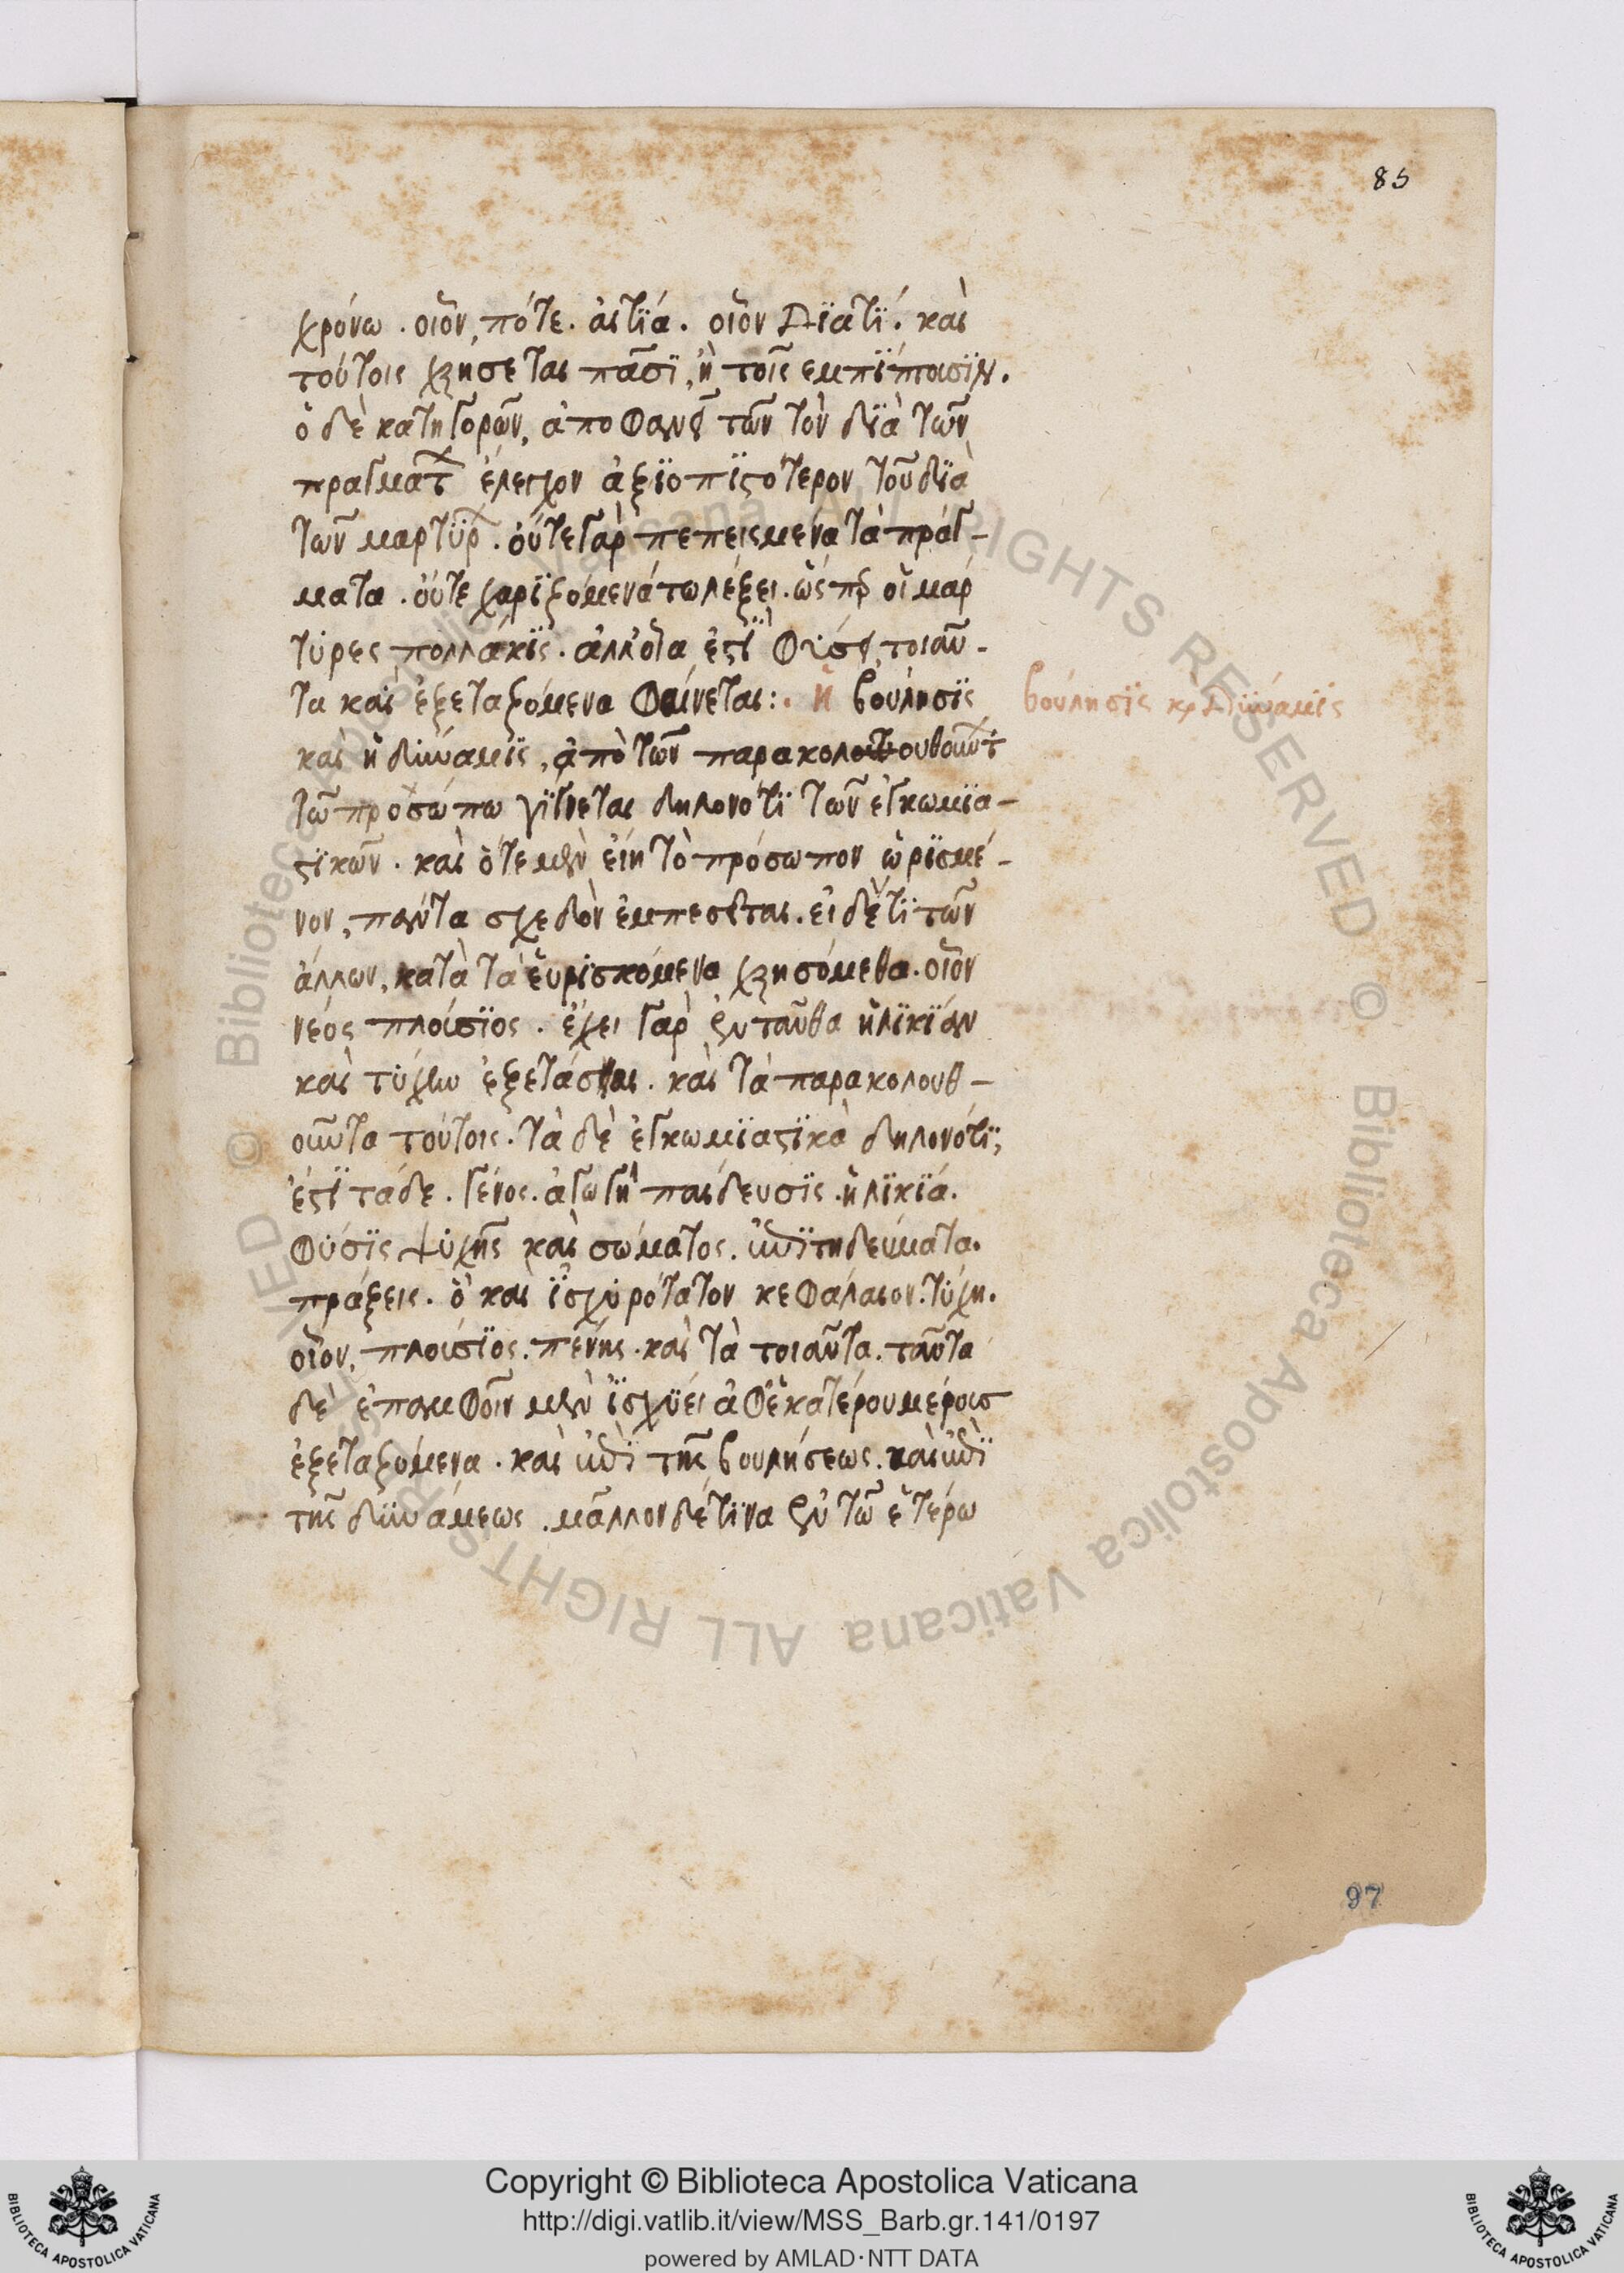 85
χρόνω . οἷον, πότε . αἰτϊά . οἷον Δϊατΐ . καὶ
τούτοις χρησεται πᾶσϊ, ἢ τοῖς εμπΐπτουσϊν.
ὁ δὲ κατηγορῶν, ἀποφανεῖ τῶν τὸν δϊὰ τῶν
πραγματ ἔλεγχον ἀξϊοπϊστότερον τοῦ δϊὰ
τῶν μαρτϋρ . οὔτε γὰρ πεπεισμένα τὰ πράγ-
ματα . οὔτε χαρϊζόμενά τω λέξει . ὥσπερ οἱ μάρ
τύρες πολλάκϊς . ἀλλ' οἷα ἐστῒ φύσει, τοιαῦ-
τα καὶ ἐξεταζόμενα φαίνεται :. ἡ βούλησϊς
βούλησϊς κ Δϋναμϊς
καὶ ἡ δύναμϊς, ἀπὸ τῶν παρακολουθουντ
τῶ προσώπω γϊγνεται δηλονότϊ τῶν ἐγκωμϊα-
στϊκῶν . καὶ ὅτε μὲν εἴη τὸ πρόσωπον ὡρϊσμέ-
νον, πάντα σχεδὸν ἐμπεσεῖται . εἰ δέ τϊ τῶν
ἄλλων, κατὰ τὰ εὑρϊσκόμενα χρησόμεθα . οἷον
νέος πλούσϊος . ἔχει γὰρ ἐνταῦθα ἡλϊκϊάν
καὶ τύχην ἐξετάσαι . καὶ τὰ παρακολουθ-
οῦντα τούτοις . τὰ δὲ ἐγκωμϊαστϊκὰ δηλονότϊ,
ἐστῒ τάδε . γένος . ἀγωγὴ παίδευσϊς . ἡλϊκϊά.
φύσϊς ψυχῆς καὶ σώματος . ἐπϊτηδεύματα.
πράξεις . ὃ καὶ ϊσχυρότατον κεφάλαιον . τύχη.
οἷον, πλούσϊος . πένης . καὶ τὰ τοιαῦτα . ταῦτα
δὲ ἐπαμφοῖν μὲν ϊσχϋει ἀφ' ἑκατέρου μέρους
ἐξεταζόμενα . καὶ ἐπῒ τῆς βουλήσεως . καὶ ἐπῒ
τῆς δϋνάμεως . μᾶλλον δέ τϊνα ἐν τῶ ἑτέρω
97
BIBLIOTECA APOSTOLICA VATICANA
Copyright © Biblioteca Apostolica Vaticana
http://digi.vatlib.it/view/MSS_Barb.gr.141/0197
powered by AMLAD·NTT DATA
BIBLIOTECA APOSTOLICA VATICANA